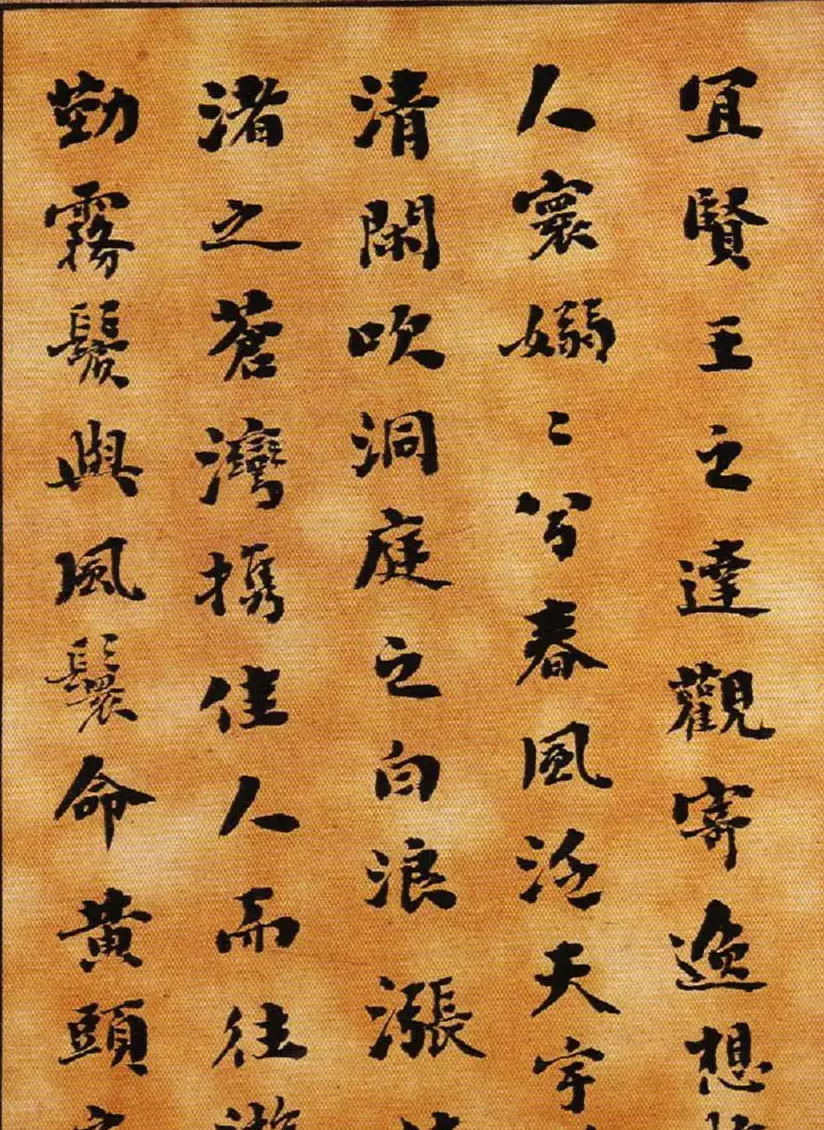 宜賢王之達觀寄逸想
人寰嫋〻兮春風泛天宇
清閑吹洞庭之白浪漲
渚之蒼灣携佳人而往游
勤霧鬢與風鬟命黃頭